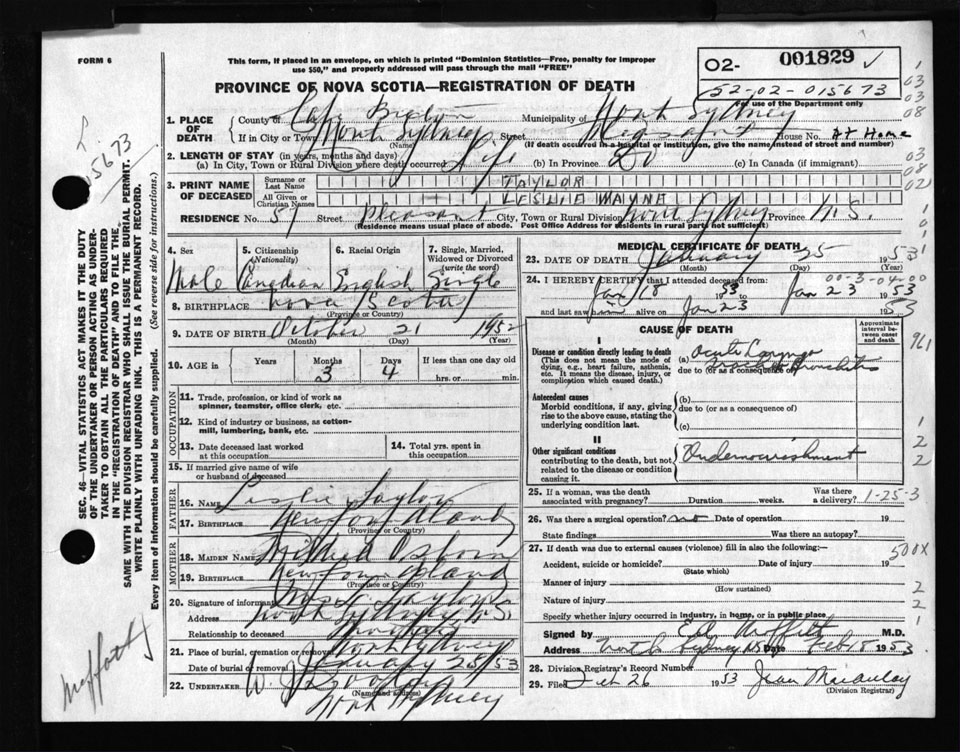 FORM 6
This form, if placed in an envelope, on which is printed "Dominion Statistics—Free, penalty for improper
use $50," and properly addressed will pass through the mail "FREE"
PROVINCE OF NOVA SCOTIA—REGISTRATION OF DEATH
O2- 001829 ✓
52-02-015673
For use of the Department only
1. PLACE OF DEATH
County of Cape Breton Municipality of North Sydney
If in City or Town North Sydney Street Pleasant House No. At Home
(Name) (If death occurred in a hospital or institution, give the name instead of street and number)
2. LENGTH OF STAY (in years, months and days)
(a) In City, Town or Rural Division where death occurred Life (b) In Province Do (c) In Canada (if immigrant)
3. PRINT NAME OF DECEASED
Surname or Last Name TAYLOR
All Given or Christian Names LESLIE WAYNE
RESIDENCE No. 57 Street Pleasant City, Town or Rural Division North Sydney Province N.S.
(Residence means usual place of abode. Post Office Address for residents in rural parts not sufficient)
4. Sex Male
5. Citizenship (Nationality) Canadian
6. Racial Origin English
7. Single, Married, Widowed or Divorced (write the word) Single
8. BIRTHPLACE Nova Scotia
(Province or Country)
9. DATE OF BIRTH October 21 1952
(Month) (Day) (Year)
10. AGE in Years Months 3 Days 4 If less than one day old
hrs. or min.
OCCUPATION
11. Trade, profession, or kind of work as
spinner, teamster, office clerk, etc.
12. Kind of industry or business, as cotton-
mill, lumbering, bank, etc.
13. Date deceased last worked
at this occupation
14. Total yrs. spent in
this occupation
15. If married give name of wife
or husband of deceased
FATHER
16. NAME Leslie Taylor
17. BIRTHPLACE Newfoundland
(Province or Country)
MOTHER
18. MAIDEN NAME Mildred Osborne
19. BIRTHPLACE Newfoundland
(Province or Country)
20. Signature of informant Mrs L. Taylor
Address North Sydney N.S.
Relationship to deceased
21. Place of burial, cremation or removal North Sydney
Date of burial or removal January 25/53
22. UNDERTAKER W. J. Dooley
(Name and address)
North Sydney
MEDICAL CERTIFICATE OF DEATH
23. DATE OF DEATH January 25 1953
(Month) (Day) (Year)
00-3-04-00
24. I HEREBY CERTIFY that I attended deceased from:
Jan 18 1953 to Jan 23 1953
and last saw him alive on Jan 23 1953
CAUSE OF DEATH
Approximate interval between onset and death
I
Disease or condition directly leading to death
(This does not mean the mode of
dying, e.g., heart failure, asthenia,
etc. It means the disease, injury, or
complication which caused death.)
(a) Acute Laryngo
due to (or as a consequence of) Bronchitis
Antecedent causes
Morbid conditions, if any, giving
rise to the above cause, stating the
underlying condition last.
(b)
due to (or as a consequence of)
(c)
II
Other significant conditions
contributing to the death, but not
related to the disease or condition
causing it.
Undernourishment
25. If a woman, was the death
associated with pregnancy? Duration weeks. Was there
a delivery? 1-25-3
26. Was there a surgical operation? no Date of operation 19
State findings Was there an autopsy?
27. If death was due to external causes (violence) fill in also the following:—
500X
Accident, suicide or homicide? Date of injury 19
(State which)
Manner of injury
(How sustained)
Nature of injury
Specify whether injury occurred in industry, in home, or in public place
Signed by M.D.
North Sydney NS Date Feb 5 1953
28. Division Registrar's Record Number
29. Filed Feb 26 1953 Jean Macaulay
(Division Registrar)
SEC. 46—VITAL STATISTICS ACT MAKES IT THE DUTY
OF THE UNDERTAKER OR PERSON ACTING AS UNDER-
TAKER TO OBTAIN ALL THE PARTICULARS REQUIRED
IN THE "REGISTRATION OF DEATH" AND TO FILE THE
SAME WITH THE DIVISION REGISTRAR WHO SHALL ISSUE THE BURIAL PERMIT.
WRITE PLAINLY WITH UNFADING INK. THIS IS A PERMANENT RECORD.
Every item of information should be carefully supplied. (See reverse side for instructions.)
L.
15673
1
03
03
08
03
08
02
1
0
1
961
1
2
2
2
2
1